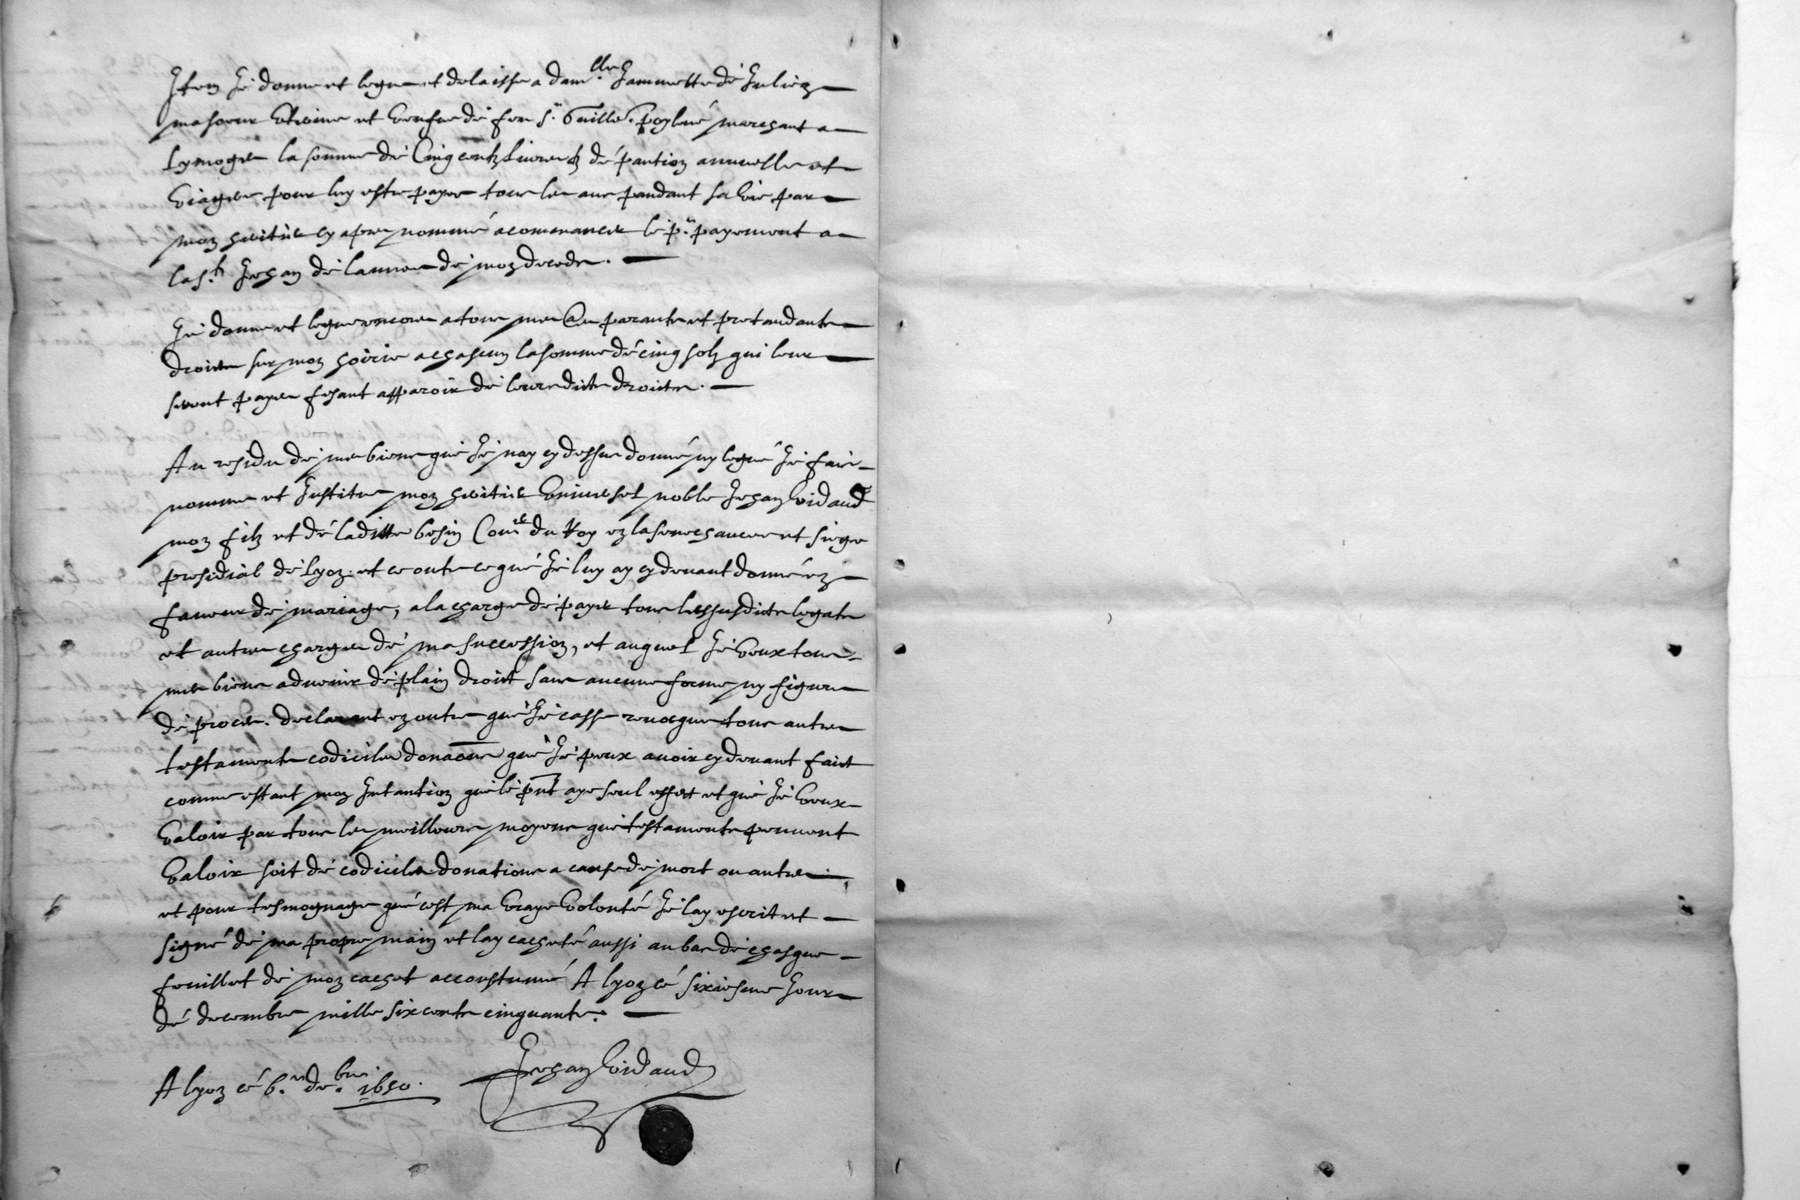 Item Je donne et legue et delaisse a dam.lle Jammette de Juliez
ma soeur Utvine et vefve de feu s.r Guille. Poyleve marchant a
Lymoges la somme de Cinq centz livres tz de pantion annuelle et
viagere pour luy estre payee tous les ans pandant sa vie par
mon heritier cy apres nommé a commancer le p.er payement a
la s.t Jehan de lannee de mon deceds.
Je donne et legue encores a tous mes aues parants et pretandants
droicts sur mon hoirie a chascun la somme de cinq solz qui leur
seront payes fesant apparoir de leurs dicts droicts.
Au residu de mes biens que Je nay cy dessus donné ny legué Je fais
nomme et Institue mon heritier universel noble Jehan Vidaud
mon filz et de laditte besin Con.er du Roy ez la seneschaucee et siege
presidial de Lyon. et ce outre ce que Je luy ay cy devant donné en
faveur de mariage, a la charge de payer tous les susdicts legats
et autres charges de ma succession, et auquel Je veux tous
mes biens advenir de plain droict sans aucune forme ny figure
de proces. declarant en outre que Je casse revoque tous autres
testaments codiciles donaons que Je peux avoir cy devant faict
comme estant mon Intantion que le pnt aye seul effect et que Je veux
valoir par tous les meilleurs moyens que testaments peuvent
valoir soit de codiciles donations a cause de mort ou autres
et pour tesmognage que cest ma vraye volonté Je lay escrit et
signé de ma propre main et lay cacheté aussi au bas de chasque
feuillet de mon cachet accoustumé A Lyon ce sixiesme Jour
de decembre mille six cents cinquante.
A Lyon cé 6.e de.bre 1650.
Jehan Vidaud